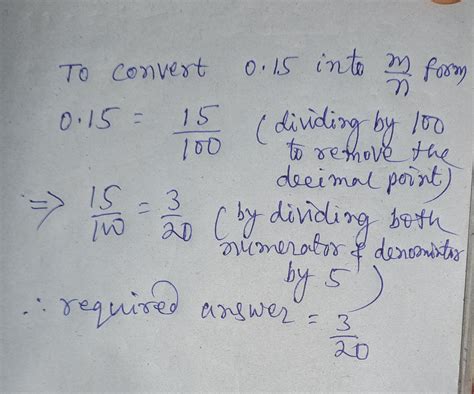 To convert 0.15 into m/n form
0.15 = 15/100 (dividing by 100
to remove the
decimal point)
⇒ 15/100 = 3/20 (by dividing both
numerator & denominator
by 5)
∴ required answer = 3/20